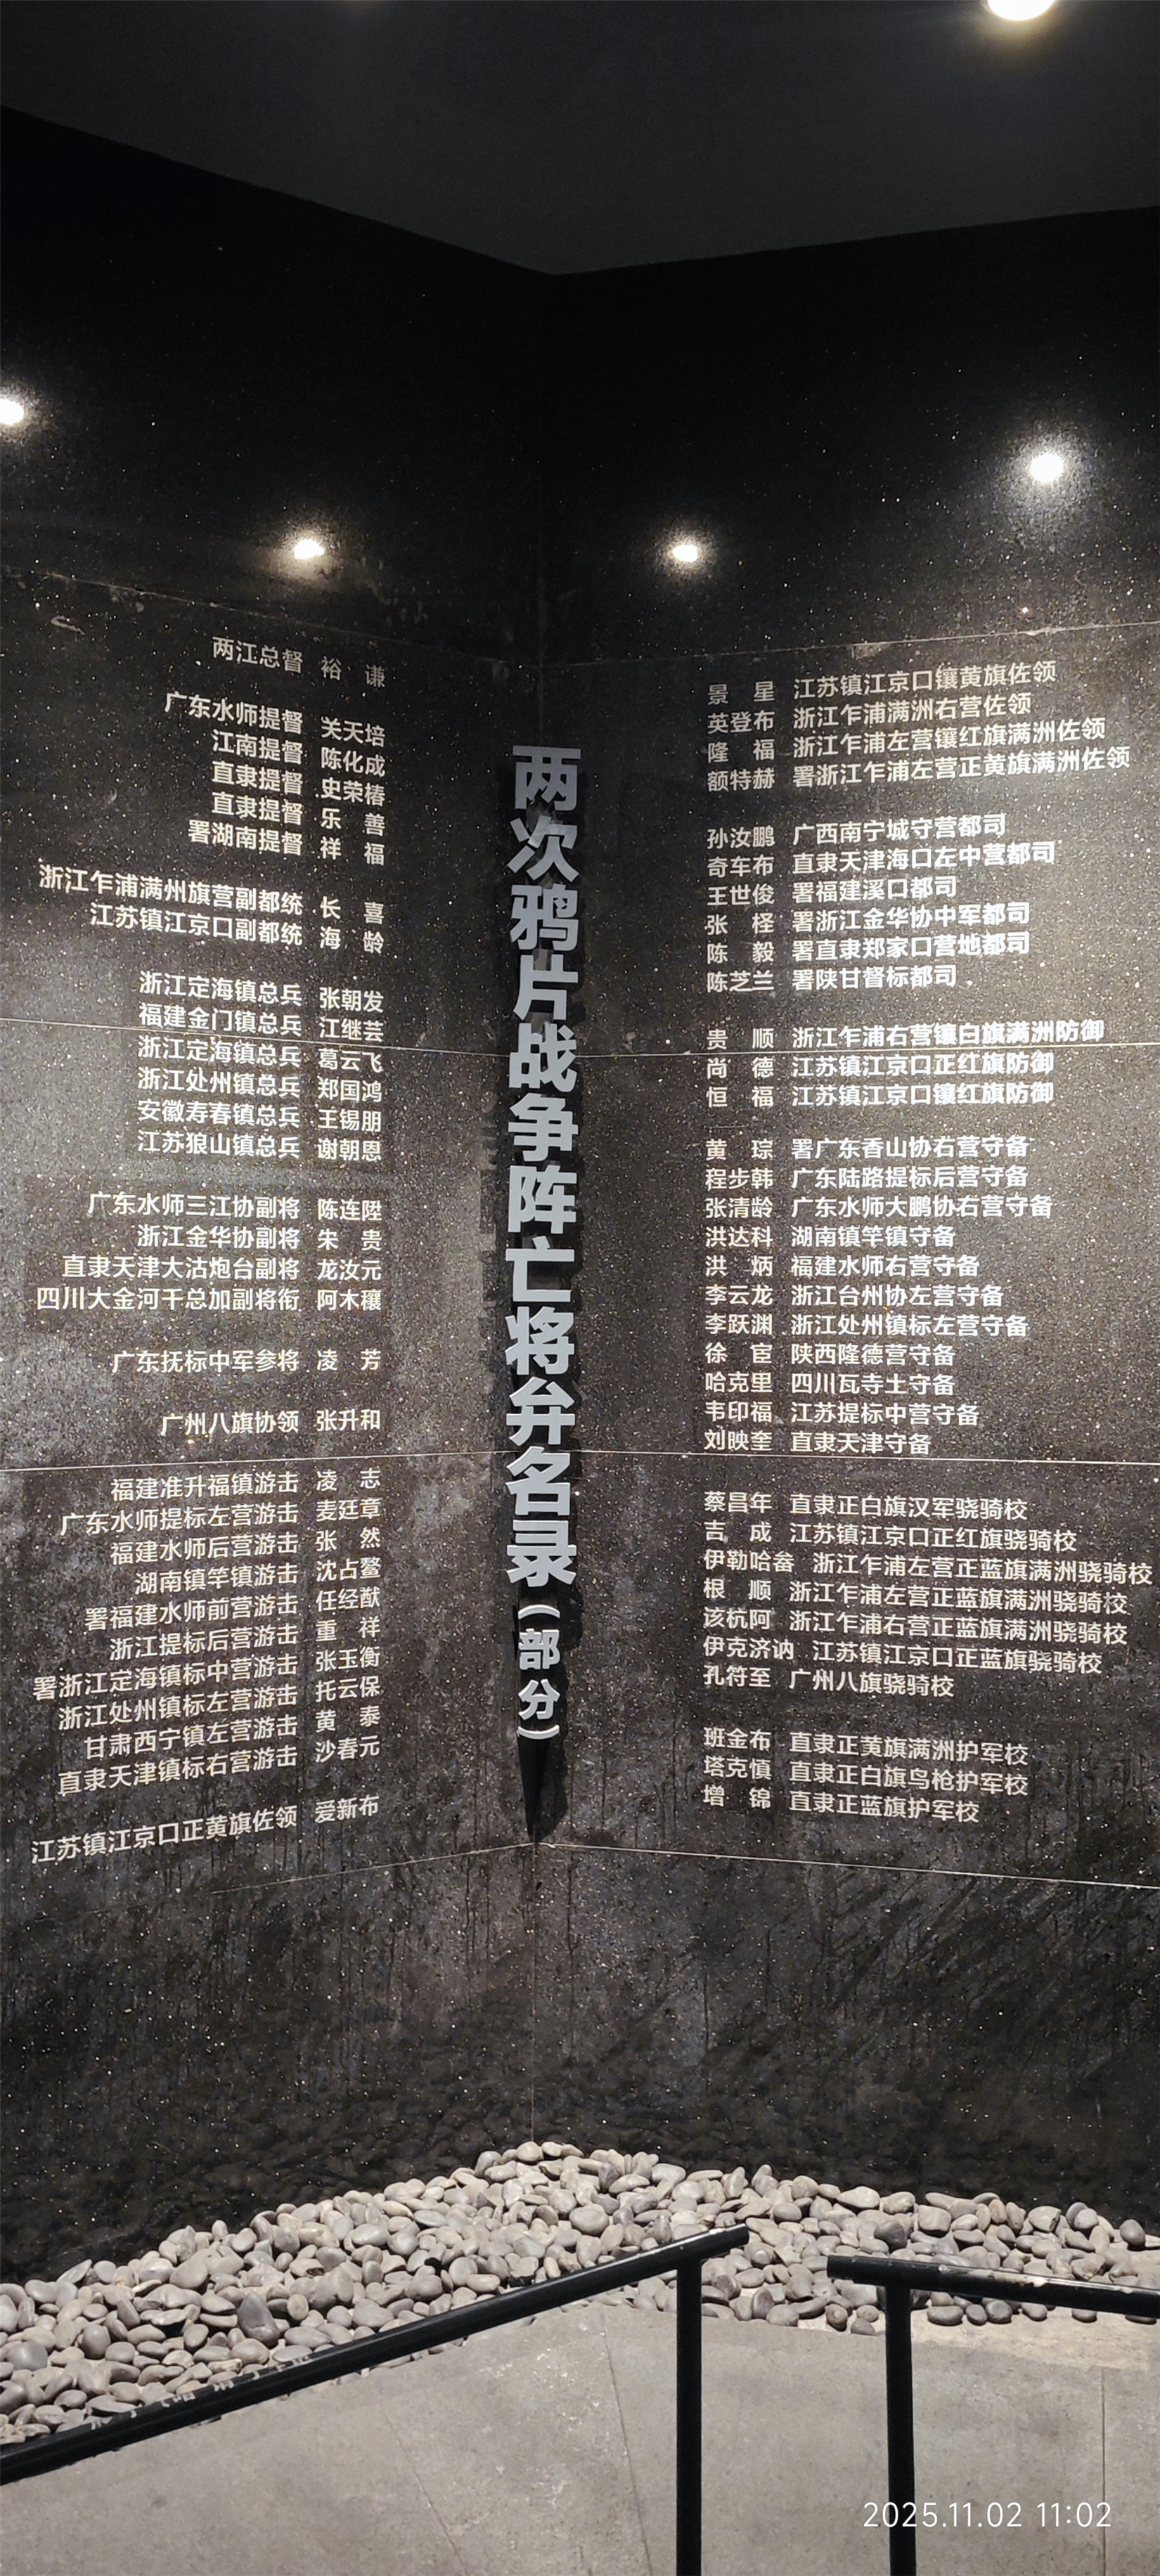 两江总督 裕 谦
广东水师提督 关天培
江南提督 陈化成
直隶提督 史荣椿
直隶提督 乐 善
署湖南提督 祥 福
浙江乍浦满州旗营副都统 长 喜
江苏镇江京口副都统 海 龄
浙江定海镇总兵 张朝发
福建金门镇总兵 江继芸
浙江定海镇总兵 葛云飞
浙江处州镇总兵 郑国鸿
安徽寿春镇总兵 王锡朋
江苏狼山镇总兵 谢朝恩
广东水师三江协副将 陈连陞
浙江金华协副将 朱 贵
直隶天津大沽炮台副将 龙汝元
四川大金河千总加副将衔 阿木穰
广东抚标中军参将 凌 芳
广州八旗协领 张升和
福建准升福镇游击 凌 志
广东水师提标左营游击 麦廷章
福建水师后营游击 张 然
湖南镇竿镇游击 沈占鳌
署福建水师前营游击 任经猷
浙江提标后营游击 重 祥
署浙江定海镇标中营游击 张玉衡
浙江处州镇标左营游击 托云保
甘肃西宁镇左营游击 黄 泰
直隶天津镇标右营游击 沙春元
江苏镇江京口正黄旗佐领 爱新布
两次鸦片战争阵亡将弁名录（部分）
景 星 江苏镇江京口镶黄旗佐领
英登布 浙江乍浦满洲右营佐领
隆 福 浙江乍浦左营镶红旗满洲佐领
额特赫 署浙江乍浦左营正黄旗满洲佐领
孙汝鹏 广西南宁城守营都司
奇车布 直隶天津海口左中营都司
王世俊 署福建溪口都司
张 柽 署浙江金华协中军都司
陈 毅 署直隶郑家口营地都司
陈芝兰 署陕甘督标都司
贵 顺 浙江乍浦右营镶白旗满洲防御
尚 德 江苏镇江京口正红旗防御
恒 福 江苏镇江京口镶红旗防御
黄 琮 署广东香山协右营守备
程步韩 广东陆路提标后营守备
张清龄 广东水师大鹏协右营守备
洪达科 湖南镇竿镇守备
洪 炳 福建水师右营守备
李云龙 浙江台州协左营守备
李跃渊 浙江处州镇标左营守备
徐 宦 陕西隆德营守备
哈克里 四川瓦寺土守备
韦印福 江苏提标中营守备
刘映奎 直隶天津守备
蔡昌年 直隶正白旗汉军骁骑校
吉 成 江苏镇江京口正红旗骁骑校
伊勒哈畚 浙江乍浦左营正蓝旗满洲骁骑校
根 顺 浙江乍浦左营正蓝旗满洲骁骑校
该杭阿 浙江乍浦右营正蓝旗满洲骁骑校
伊克济讷 江苏镇江京口正蓝旗骁骑校
孔符至 广州八旗骁骑校
班金布 直隶正黄旗满洲护军校
塔克慎 直隶正白旗鸟枪护军校
增 锦 直隶正蓝旗护军校
2025.11.02 11:02